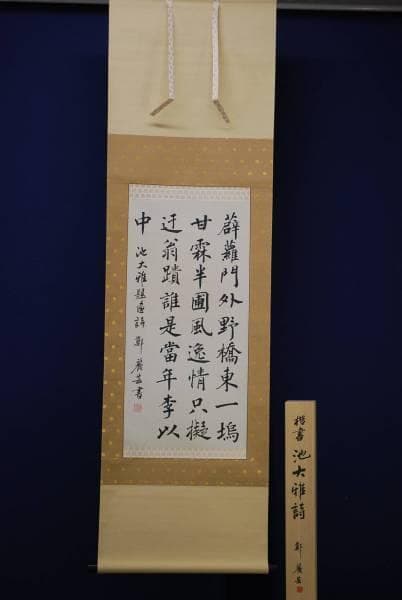 薜蘿門外野橋東一塢
甘霖半圃風逸情只擬
迂翁蹟誰是當年李以
中 池大雅題画詩 鄭麗芸書
楷書 池大雅詩 鄭麗芸